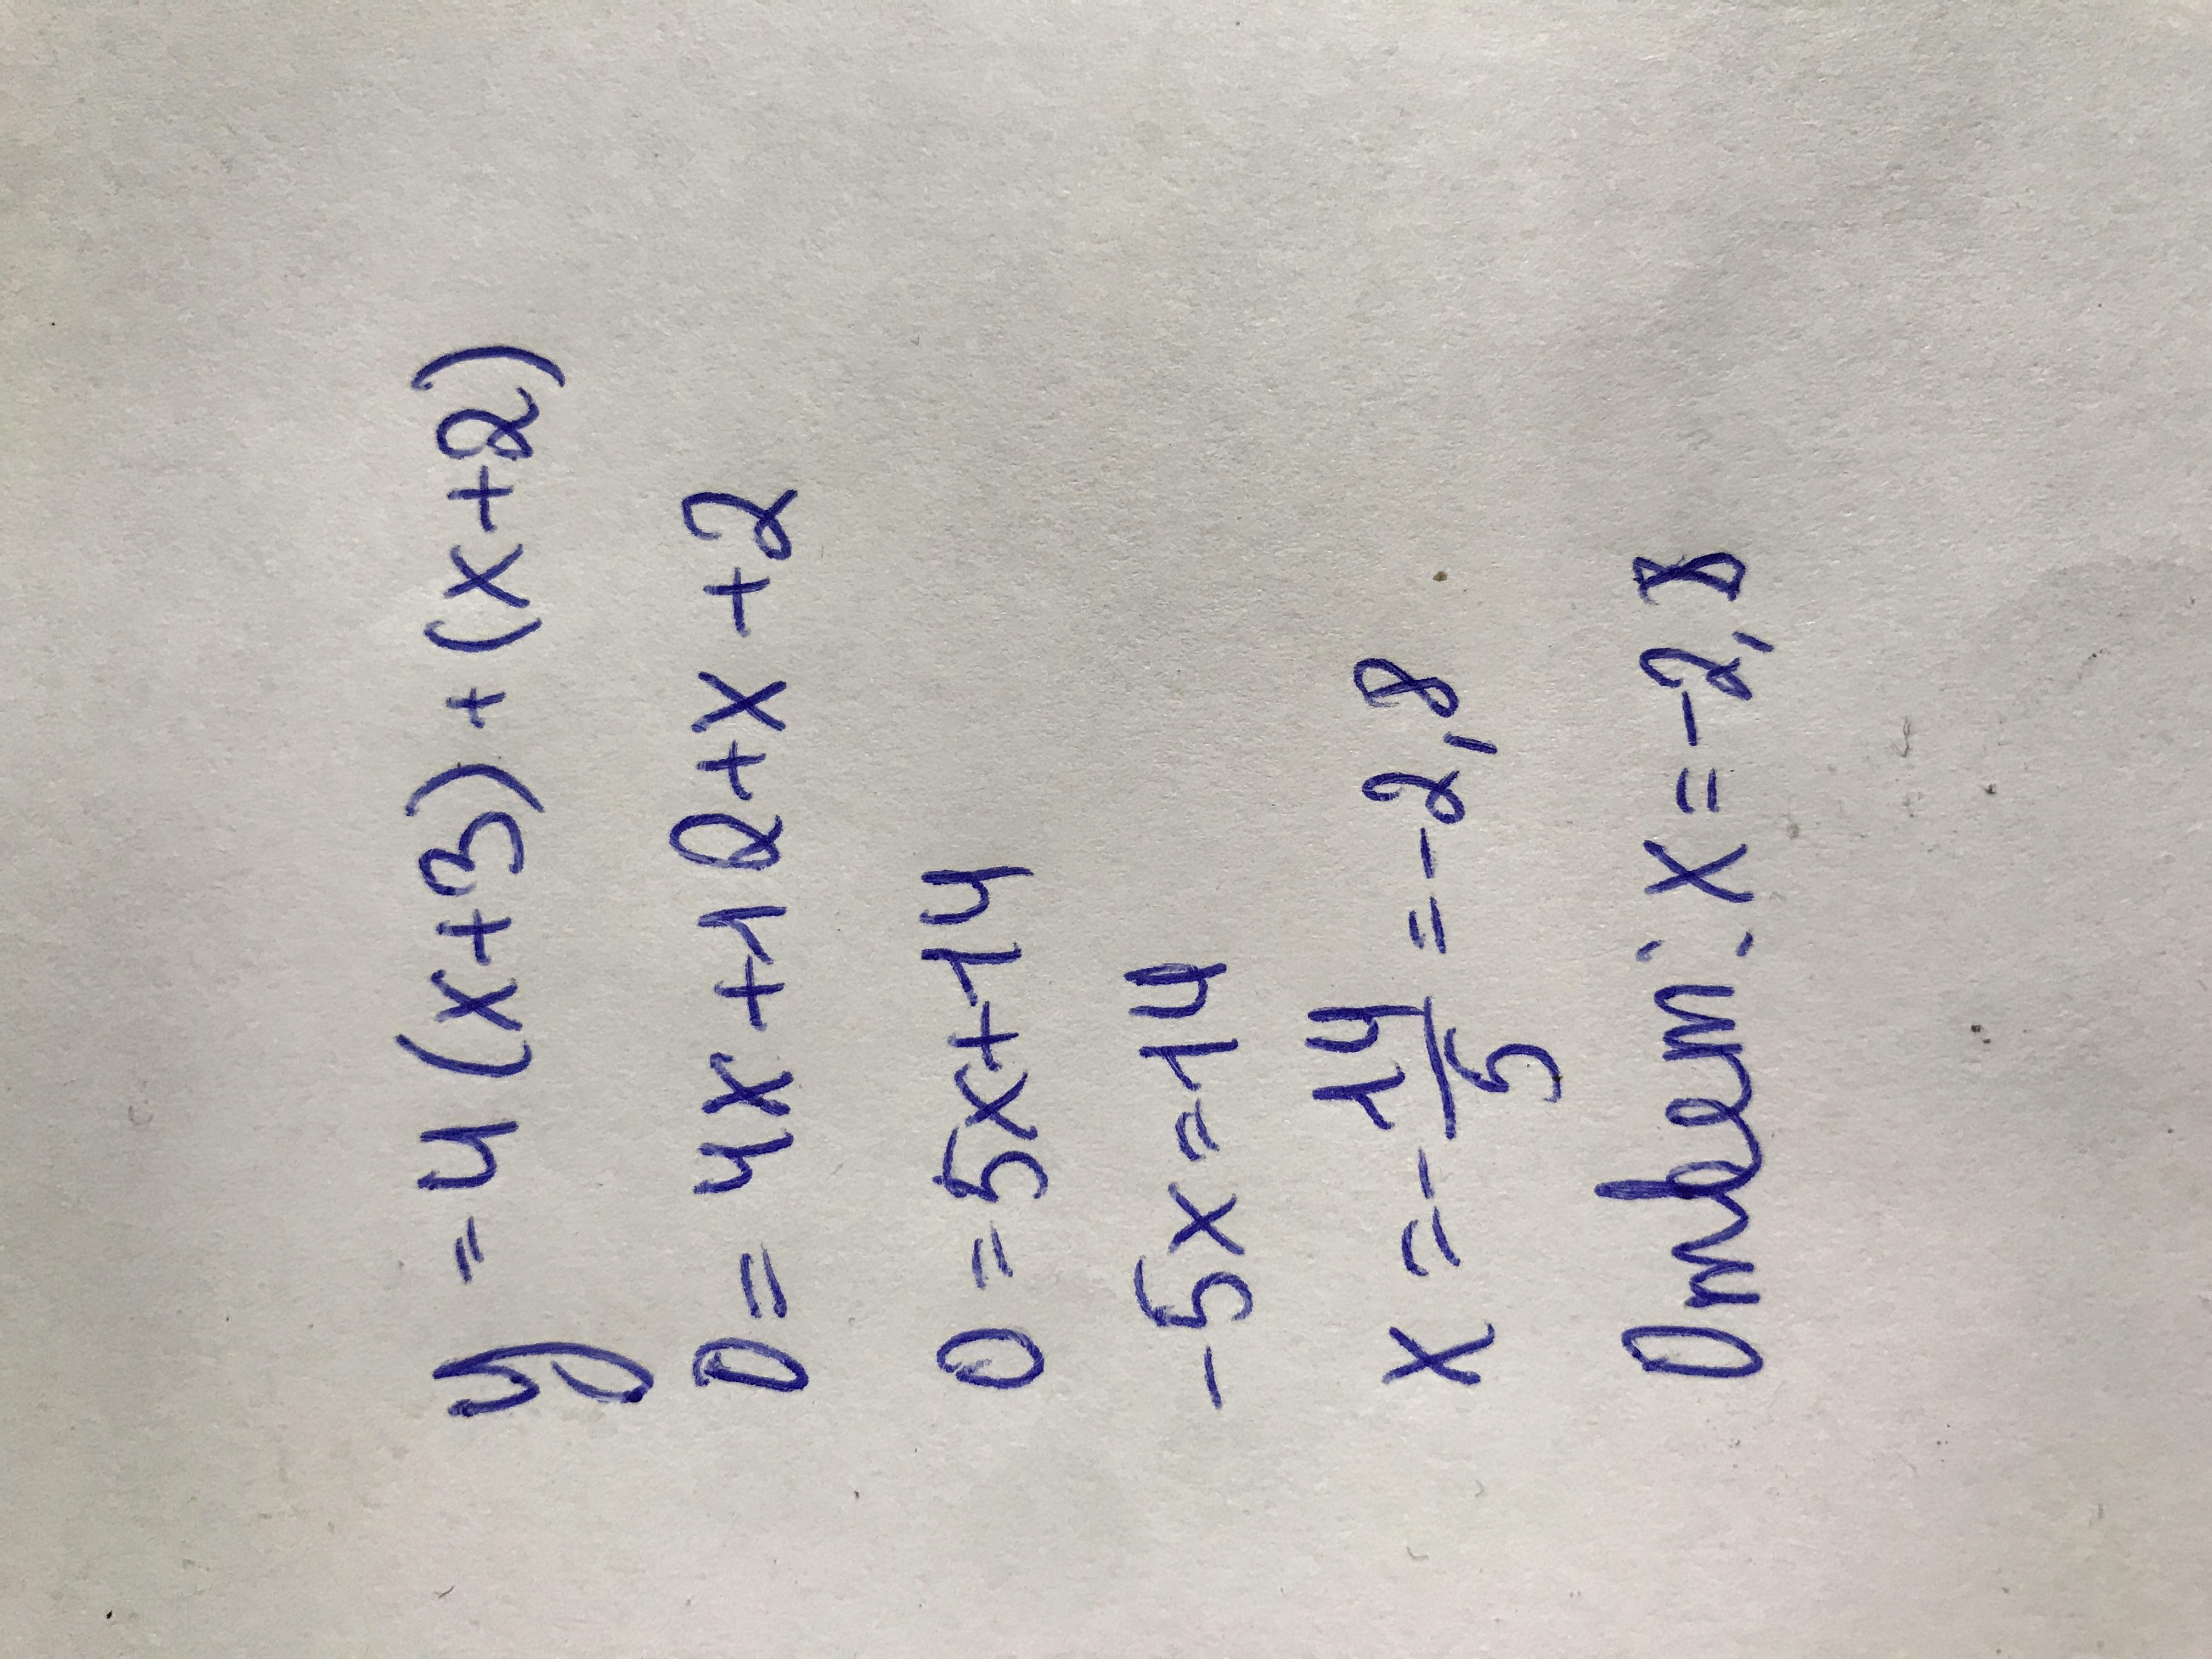 y = 4(x+3)+(x+2)
0 = 4x+12+x+2
0 = 5x+14
-5x=14
x = -14/5 = -2,8
Ответ: x = -2,8